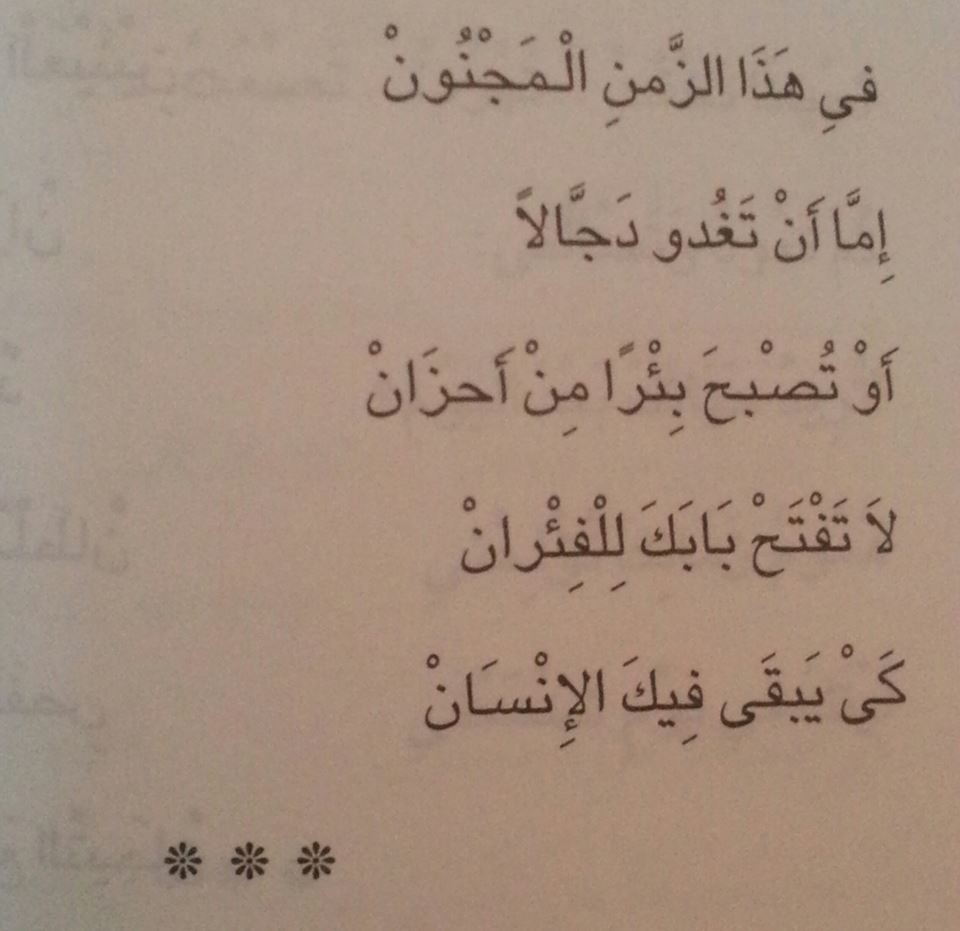 فيِ هَذَا الزَّمنِ الْمَجْنُونْ
إِمَّا أَنْ تَغُدو دَجَّالاً
أَوْ تُصْبحَ بِئْرًا مِنْ أَحزَانْ
لاَ تَفْتَحْ بَابَكَ لِلْفِئْرانْ
كَىْ يَبقَى فِيكَ الإِنْسَانْ
❊ ❊ ❊